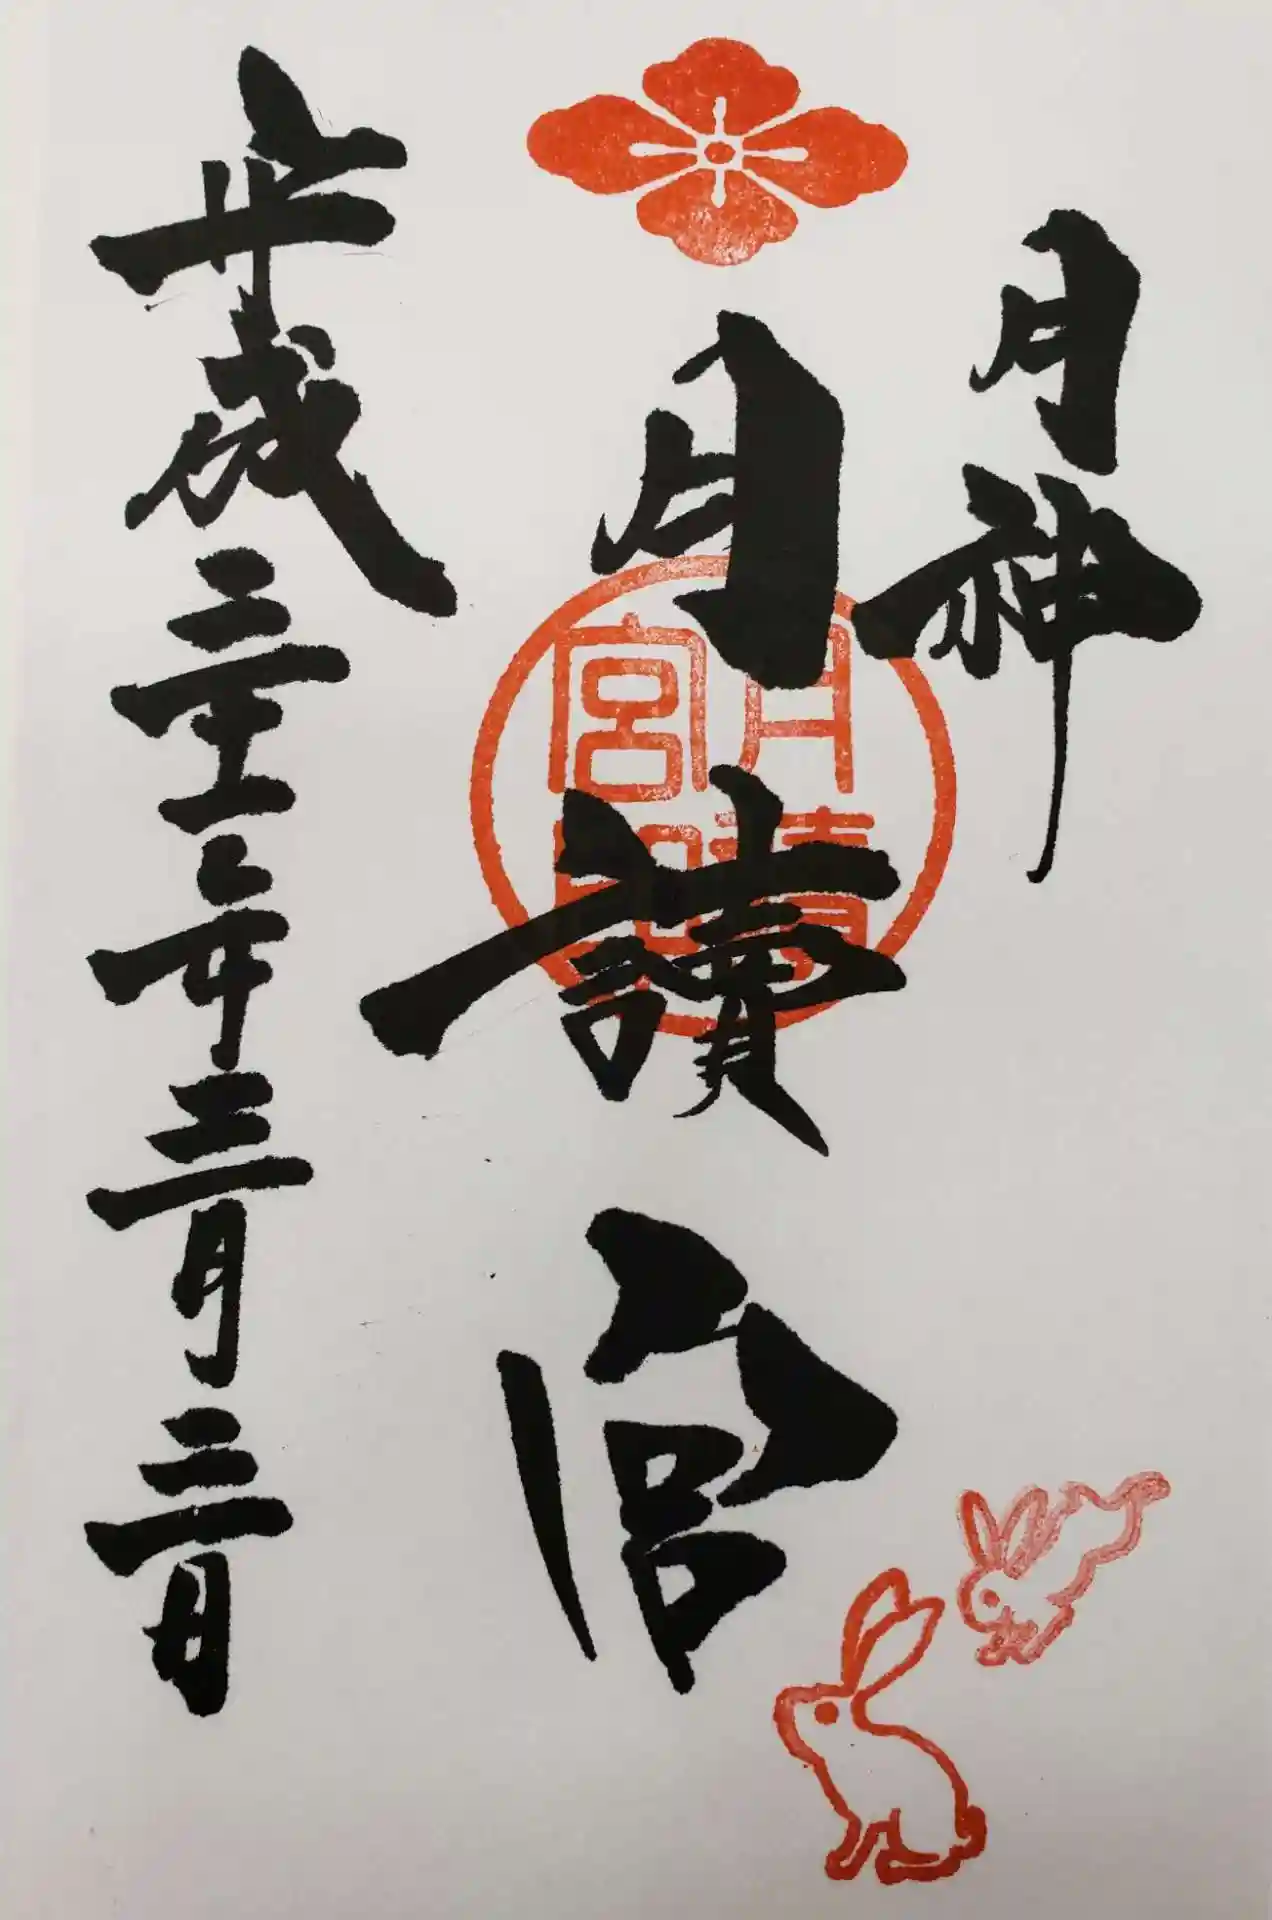 月神
月讀宮
平成三十一年三月三日
月讀宮印